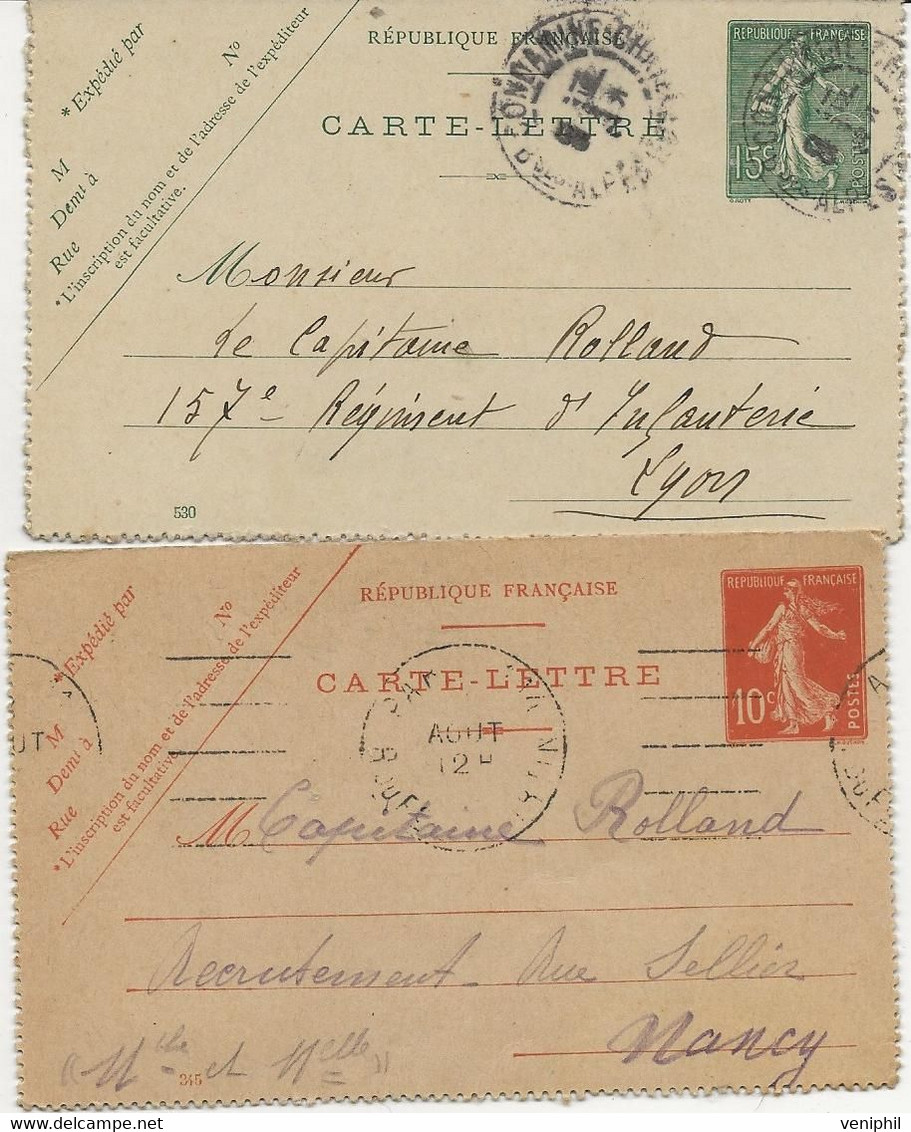 * Expédié par
M N°
Demt à
Rue
*L'inscription du nom et de l'adresse de l'expéditeur
est facultative.
RÉPUBLIQUE FRANÇAISE
CARTE-LETTRE
RÉPUBLIQUE FRANÇAISE
15c
POSTES
Monsieur
Le Capitaine Rolland
157e Régiment d'Infanterie
Lyon
530
*Expédié par
M N°
Demt à
Rue
*L'inscription du nom et de l'adresse de l'expéditeur
est facultative.
RÉPUBLIQUE FRANÇAISE
CARTE-LETTRE
RÉPUBLIQUE FRANÇAISE
10c
POSTES
AOUT
12H
M Capitaine Rolland
Recrutement Rue Sellier
Nancy
345
www.delcampe.net
veniphil